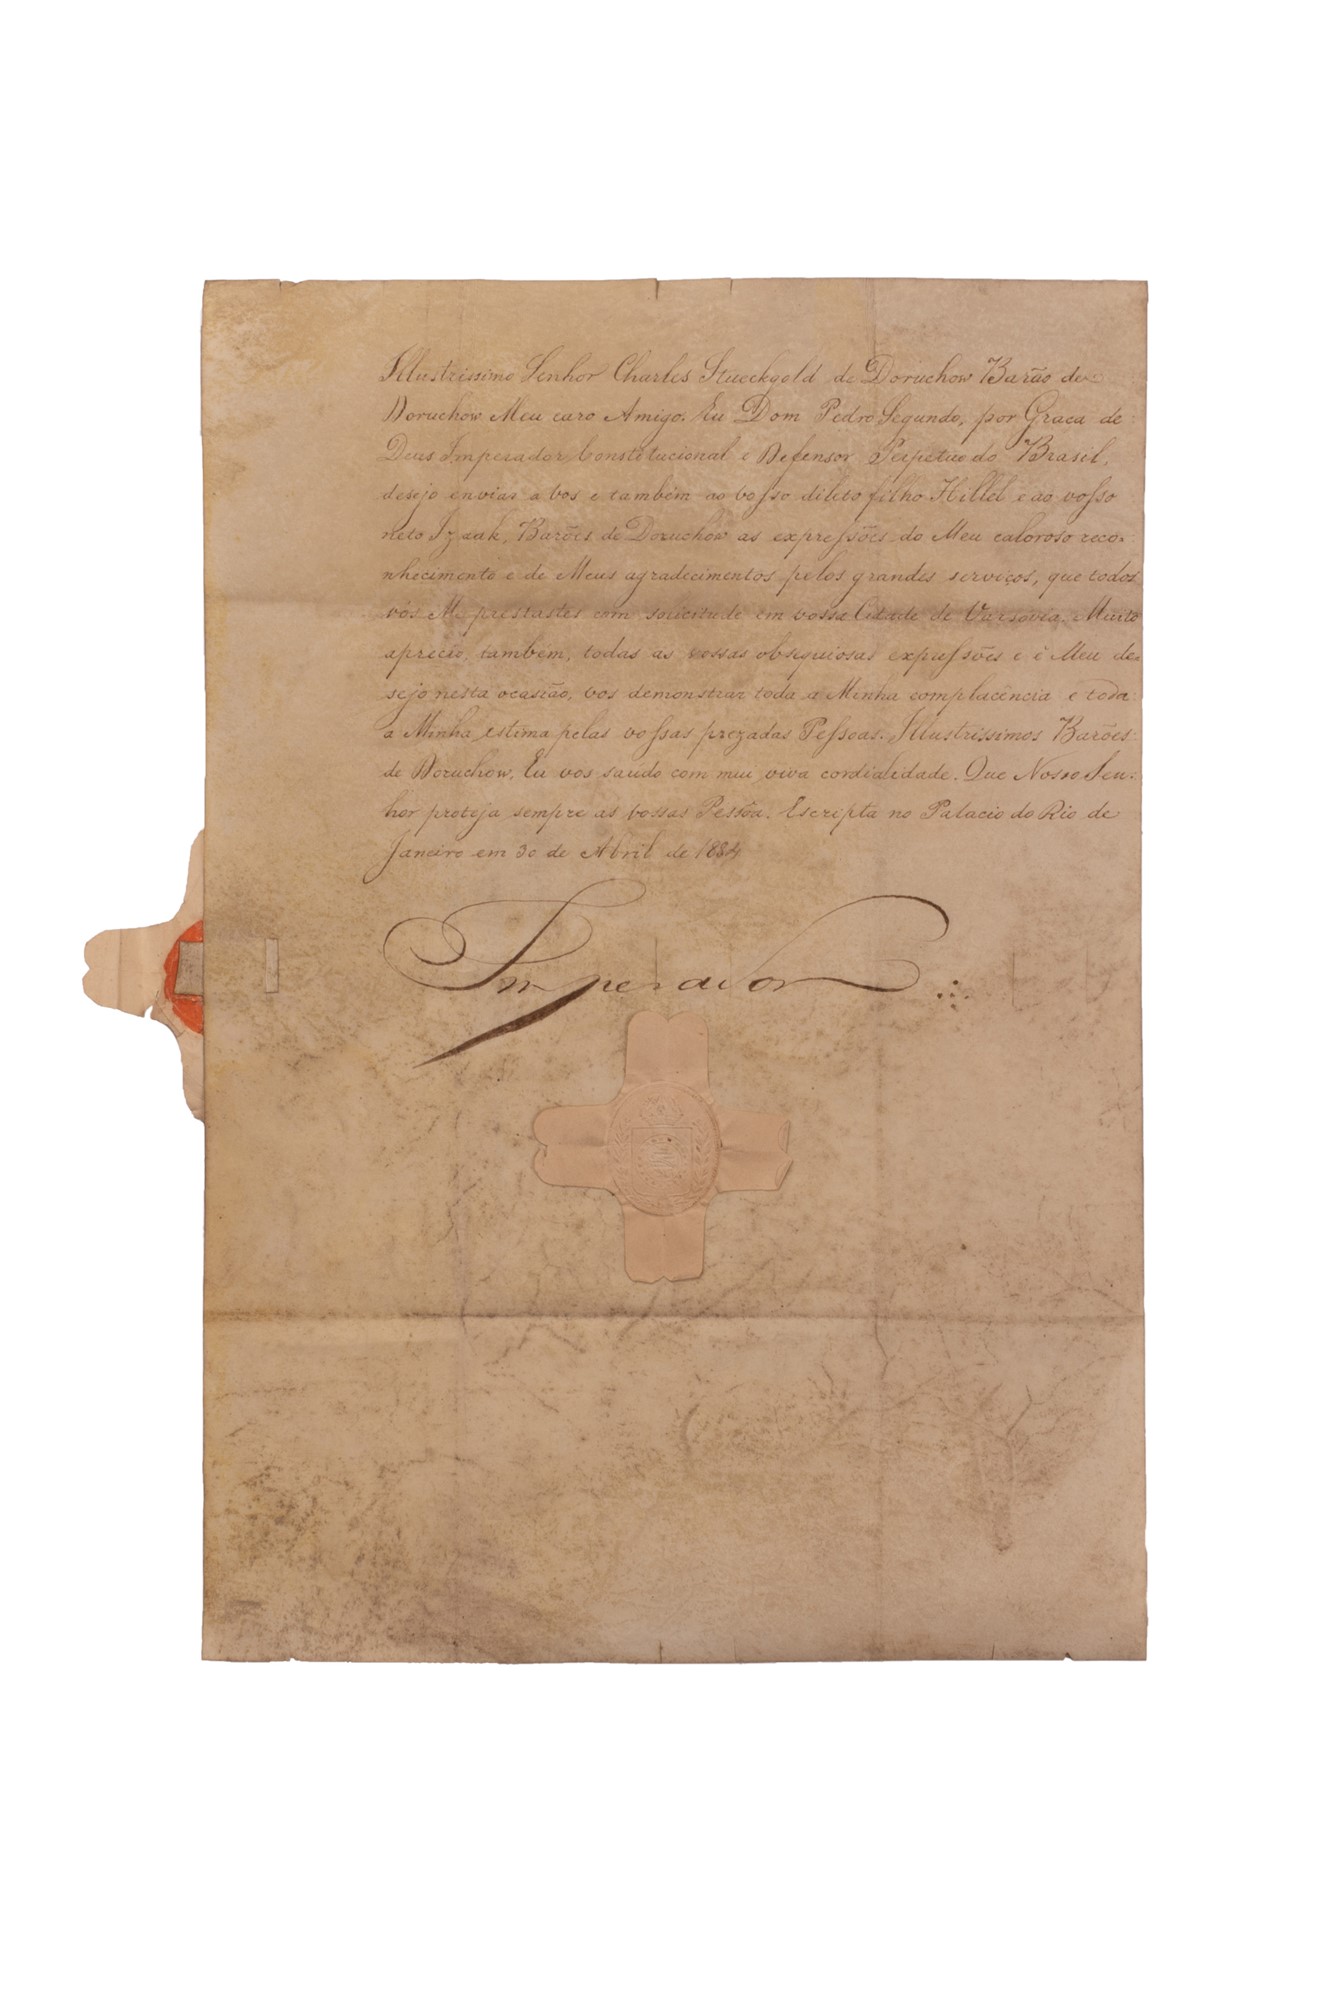 Illustrissimo Senhor Charles Stueckgold de Doruchow Barão de
Doruchow Meu caro Amigo. Eu Dom Pedro Segundo, por Graca de
Deus Imperador Constitucional e Defensor Perpetuo do Brasil,
desejo enviar a vos e também ao vosso dileto filho Hillel e ao vosso
neto Izaak, Barões de Doruchow as expressões do Meu caloroso reco-
nhecimento e de Meus agradecimentos pelos grandes serviços, que todos
vós Me prestastes com solicitude em vossa Cidade de Varsovia. Muito
aprecio, também, todas as vossas obsequiosas expressões e é Meu de-
sejo nesta ocasião, vos demonstrar toda a Minha complacência e toda
a Minha estima pelas vossas prezadas Pessoas. Illustrissimos Barões
de Doruchow, Eu vos saúdo com mui viva cordialidade. Que Nosso Sen-
hor proteja sempre as vossas Pessôa. Escripta no Palacio do Rio de
Janeiro em 30 de Abril de 1884
Imperador